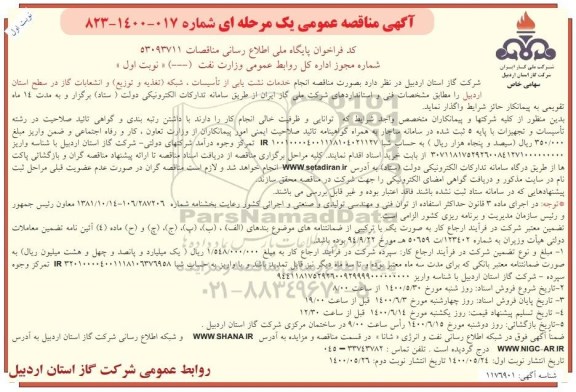 نوبت اول
آگهی مناقصه عمومی یک مرحله ای شماره ۰۱۷-۱۴۰۰-۸۲۳
کد فراخوان پایگاه ملی اطلاع رسانی مناقصات ۵۳۰۹۳۷۱۱
شماره مجوز اداره کل روابط عمومی وزارت نفت (---) « نوبت اول »
شرکت ملی گاز ایران
شرکت گاز استان اردبیل
سهامی خاص
شرکت گاز استان اردبیل در نظر دارد بصورت مناقصه انجام خدمات نشت یابی از تأسیسات ، شبکه (تغذیه و توزیع) و انشعابات گاز در سطح استان
اردبیل را مطابق مشخصات فنی و استانداردهای شرکت ملی گاز ایران از طریق سامانه تدارکات الکترونیکی دولت ( ستاد) برگزار و به مدت ۱۴ ماه
تقویمی به پیمانکار حائز شرایط واگذار نماید.
بدین منظور از کلیه شرکتها و پیمانکاران متخصص واجد شرایط که توانایی و ظرفیت خالی انجام کار را دارند با داشتن رتبه بندی و گواهی تائید صلاحیت در رشته
تأسیسات و تجهیزات با پایه ۵ ثبت شده در سامانه ساجار به همراه گواهینامه تائید صلاحیت ایمنی امور پیمانکاران از وزارت تعاون ، کار و رفاه اجتماعی و ضمن واریز مبلغ
۳۵۰/۰۰۰ ریال (سیصد و پنجاه هزار ریال ) به حساب
تمرکز وجوه درآمد شرکتهای دولتی- شرکت گاز استان اردبیل با شناسه واریز
بابت خرید اسناد اقدام نمایند. کلیه مراحل برگزاری مناقصه از دریافت اسناد مناقصه تا ارائه پیشنهاد مناقصه گران و بازگشائی پاکت
ها از طریق درگاه سامانه تدارکات الکترونیکی دولت (ستاد) به آدرس www.setadiran.ir انجام خواهد شد و لازم است مناقصه گران در صورت عدم عضویت قبلی مراحل ثبت
نام در سایت مذکور و دریافت گواهی امضای الکترونیکی را جهت شرکت در مناقصه محقق سازند.
پیشنهادهایی که در سامانه ستاد ثبت نشده باشند فاقد اعتبار بوده و غیر قابل بررسی می باشند.
*توجه: در اجرای ماده ۳ قانون حداکثر استفاده از توان فنی و مهندسی تولیدی و صنعتی و اجرائی کشور رعایت بخشنامه شماره ۱۰۶/۲۸۷۲۰۶- ۱۳۸۱/۱۰/۱۴ معاون رئیس جمهور
و رئیس سازمان مدیریت و برنامه ریزی کشور الزامی است.
تضمین معتبر شرکت در فرآیند ارجاع کار به صورت یک یا ترکیبی از ضمانتنامه های موضوع بندهای (الف) ، (ب)، (پ)، (ج)، (چ) و (ح) ماده (۴) آئین نامه تضمین معاملات
دولتی هیأت وزیران به شماره ۱۲۳۴۰۲/ت ۵۰۶۵۹ هـ مورخ ۹۴/۹/۲۲ بوده باشد.
۱- مبلغ و نوع تضمین شرکت در فرآیند ارجاع کار: سپرده شرکت در فرآیند ارجاع کار به مبلغ ۱/۵۴۸/۰۰۰/۰۰۰ ریال ( یک میلیارد و پانصد و چهل و هشت میلیون ریال) به
صورت ضمانتنامه معتبر بانکی که برای مدت سه ماه معتبر بوده و تا سه ماه دیگر نیز قابل تمدید باشد و یا واریز به حساب شبا
تمرکز وجوه
سپرده – شرکت گاز استان اردبیل با شناسه واریز
۲-تاریخ شروع فروش اسناد: روز شنبه مورخ ۱۴۰۰/۵/۳۰ از ساعت ۸/۰۰
۳- تاریخ پایان فروش اسناد: روز چهارشنبه مورخ ۱۴۰۰/۶/۳ قبل از ساعت ۱۹/۰۰
۴- تاریخ تسلیم پیشنهاد قیمت: روز یکشنبه مورخ ۱۴۰۰/۶/۱۴ قبل از ساعت ۱۲/۳۰
۵-تاریخ بازگشائی: روز دوشنبه مورخ ۱۴۰۰/۶/۱۵ رأس ساعت ۹/۰۰ در ساختمان مرکزی شرکت گاز استان اردبیل .
ضمنا آگهی فوق در شبکه اطلاع رسانی نفت و انرژی « شانا » در قسمت مناقصه و مزایده به آدرس WWW.SHANA.IR و شبکه اطلاع رسانی شرکت گاز استان اردبیل به آدرس
WWW.NIGC-AR.IR درج گردیده است . تلفن تماس : ۳۳۷۴۳۷۸۲ - ۰۴۵
تاریخ انتشار نوبت اول: ۱۴۰۰/۰۵/۲۴ تاریخ انتشار نوبت دوم: ۱۴۰۰/۰۵/۲۶
شناسه آگهی: ۱۱۷۶۹۰۱
روابط عمومی شرکت گاز استان اردبیل
ParsNamadData
۰۲۱-۸۸۳۴۹۶۷۰